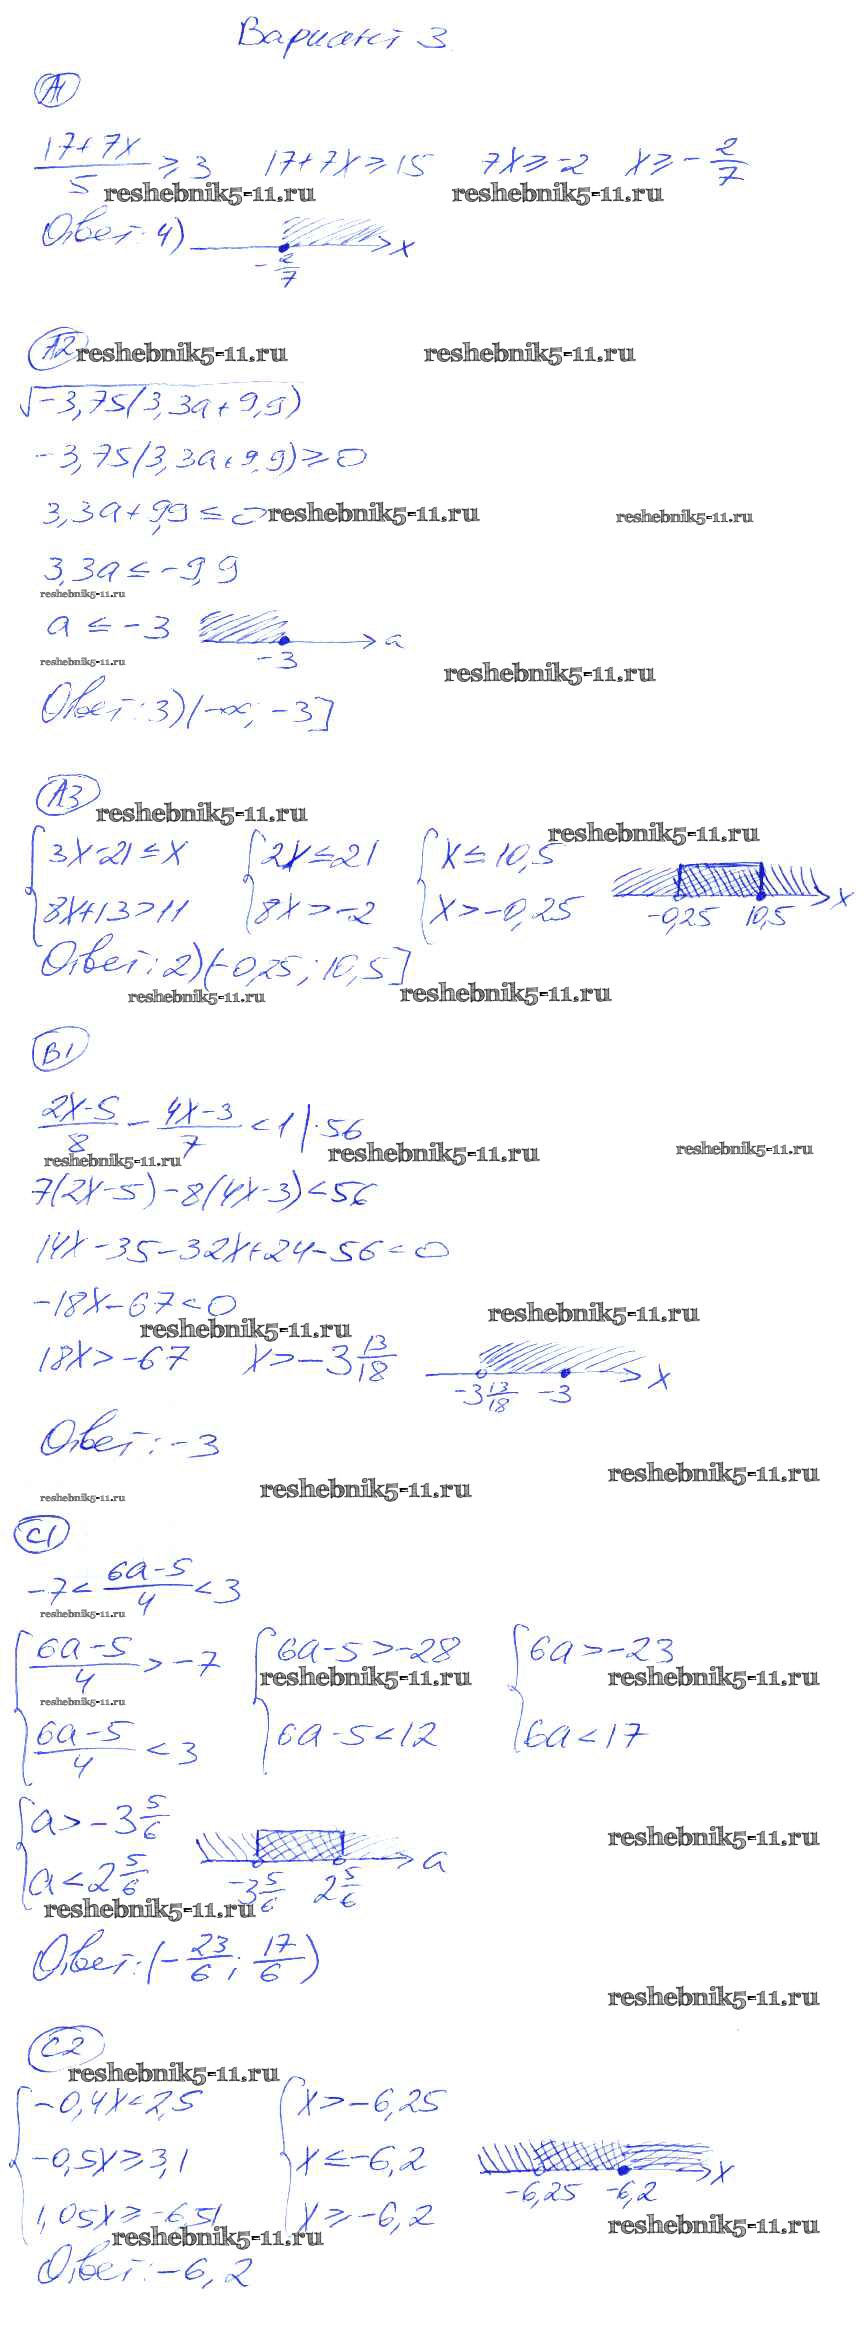 Вариант 3
А1
(17+7x)/5 ≥ 3   17+7x ≥ 15   7x ≥ -2   x ≥ -2/7
reshebnik5-11.ru   reshebnik5-11.ru
Ответ: 4)   -2/7   x
А2 reshebnik5-11.ru   reshebnik5-11.ru
√-3,75(3,3a+9,9)
-3,75(3,3a+9,9) ≥ 0
3,3a+9,9 ≤ 0 reshebnik5-11.ru   reshebnik5-11.ru
3,3a ≤ -9,9
reshebnik5-11.ru
a ≤ -3   -3   a
reshebnik5-11.ru   reshebnik5-11.ru
Ответ: 3) (-∞; -3]
А3 reshebnik5-11.ru
reshebnik5-11.ru
{3x-21 ≤ x   {2x ≤ 21   {x ≤ 10,5
8x+13 > 11   8x > -2   x > -0,25   -0,25   10,5   x
Ответ: 2) (-0,25; 10,5]
reshebnik5-11.ru   reshebnik5-11.ru
В1
(2x-5)/8 - (4x-3)/7 < 1 | ·56
reshebnik5-11.ru   reshebnik5-11.ru   reshebnik5-11.ru
7(2x-5)-8(4x-3)<56
14x-35-32x+24-56<0
-18x-67<0
reshebnik5-11.ru   reshebnik5-11.ru
18x > -67   x > -3 13/18   -3 13/18   -3   x
Ответ: -3
reshebnik5-11.ru   reshebnik5-11.ru   reshebnik5-11.ru
С1
-7 < (6a-5)/4 < 3
reshebnik5-11.ru
{(6a-5)/4 > -7   {6a-5 > -28   {6a > -23
reshebnik5-11.ru   reshebnik5-11.ru   reshebnik5-11.ru
(6a-5)/4 < 3   6a-5 < 12   6a < 17
{a > -3 5/6
reshebnik5-11.ru
a < 2 5/6   -3 5/6   2 5/6   a
reshebnik5-11.ru
Ответ: (-23/6; 17/6)
reshebnik5-11.ru
С2
reshebnik5-11.ru
{-0,4x < 2,5   {x > -6,25
-0,5x ≥ 3,1   x ≤ -6,2   -6,25   -6,2   x
1,05x ≥ -6,51   x ≥ -6,2
reshebnik5-11.ru   reshebnik5-11.ru
Ответ: -6,2